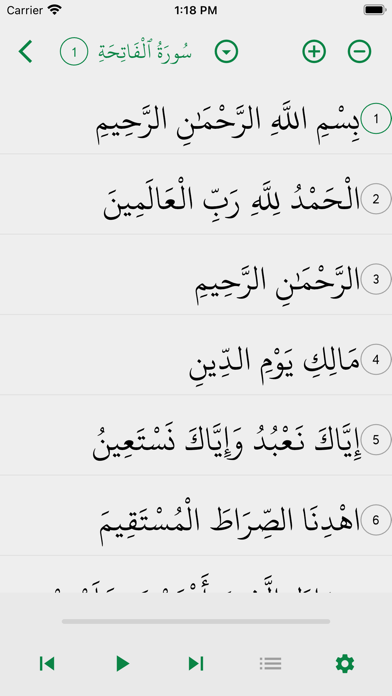 Carrier 1:18 PM
1 سُورَةُ ٱلْفَاتِحَةِ
1 بِسْمِ اللَّهِ الرَّحْمَٰنِ الرَّحِيمِ
2 الْحَمْدُ لِلَّهِ رَبِّ الْعَالَمِينَ
3 الرَّحْمَٰنِ الرَّحِيمِ
4 مَالِكِ يَوْمِ الدِّينِ
5 إِيَّاكَ نَعْبُدُ وَإِيَّاكَ نَسْتَعِينُ
6 اهْدِنَا الصِّرَاطَ الْمُسْتَقِيمَ